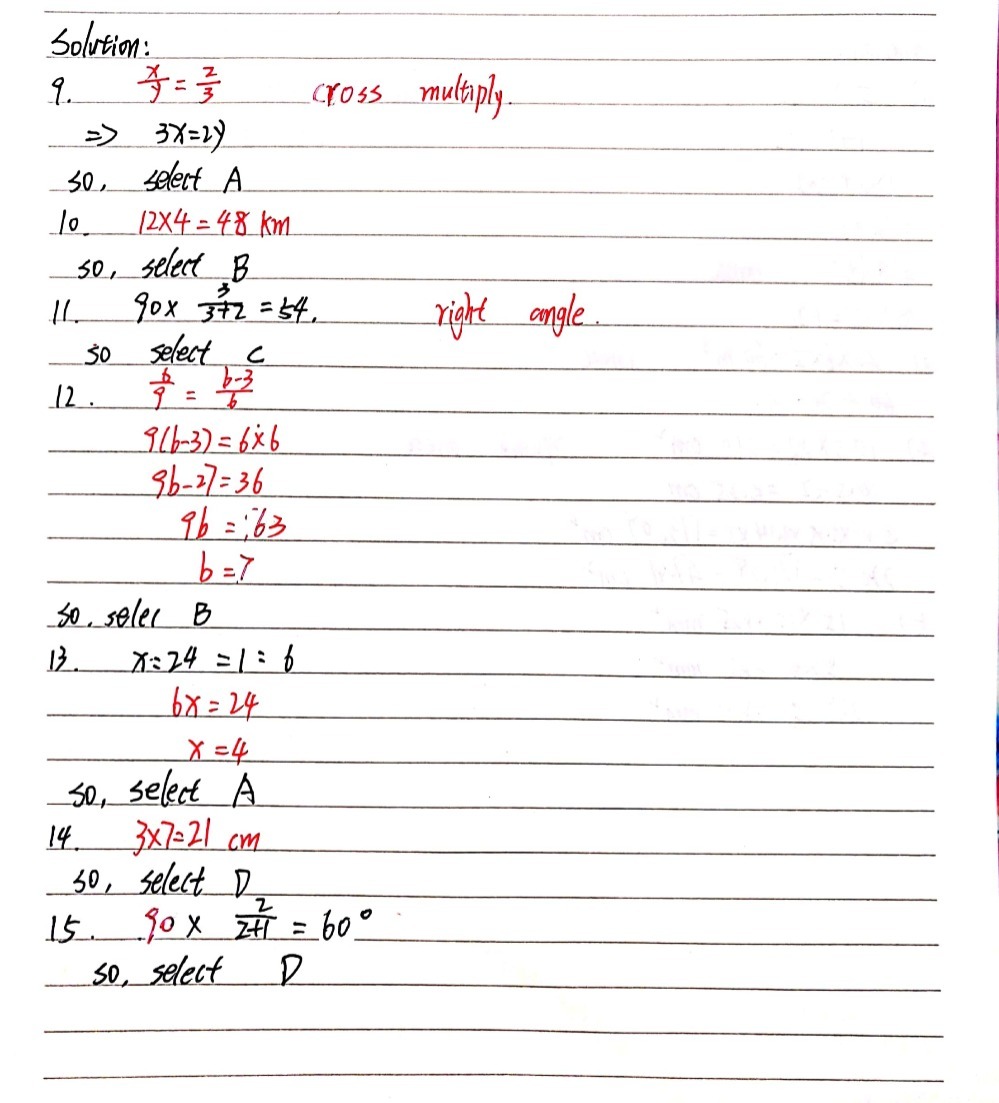 Solution:
9. x/y = 2/3 cross multiply.
=> 3x=2y
so, select A
10. 12×4=48 km
so, select B
11. 90× 3/3+2 =54. right angle.
so select C
12. 6/9 = b-3/b
9(b-3)=6×6
9b-27=36
9b = 63
b=7
so, selec B
13. x:24 =1:6
6x=24
x=4
so, select A
14. 3×7=21 cm
so, select D
15. 90 × 2/2+1 = 60°
so, select D